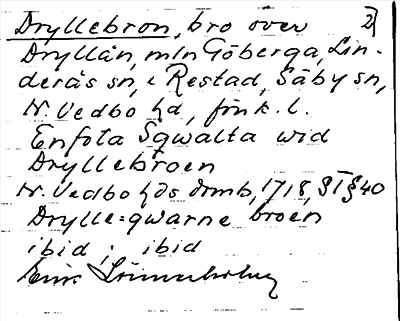 Dryllebron, bro över 2)
Dryllån, mln Göberga, Lin-
derås sn, o Restad, Säby sn,
N. Vedbo hd, Jönk. l.
Enfota Sqwalta wid
Dryllebroen
N. Vedbo hds domb, 1718, § 40
Drylle=qwarne broen
ibid ; ibid